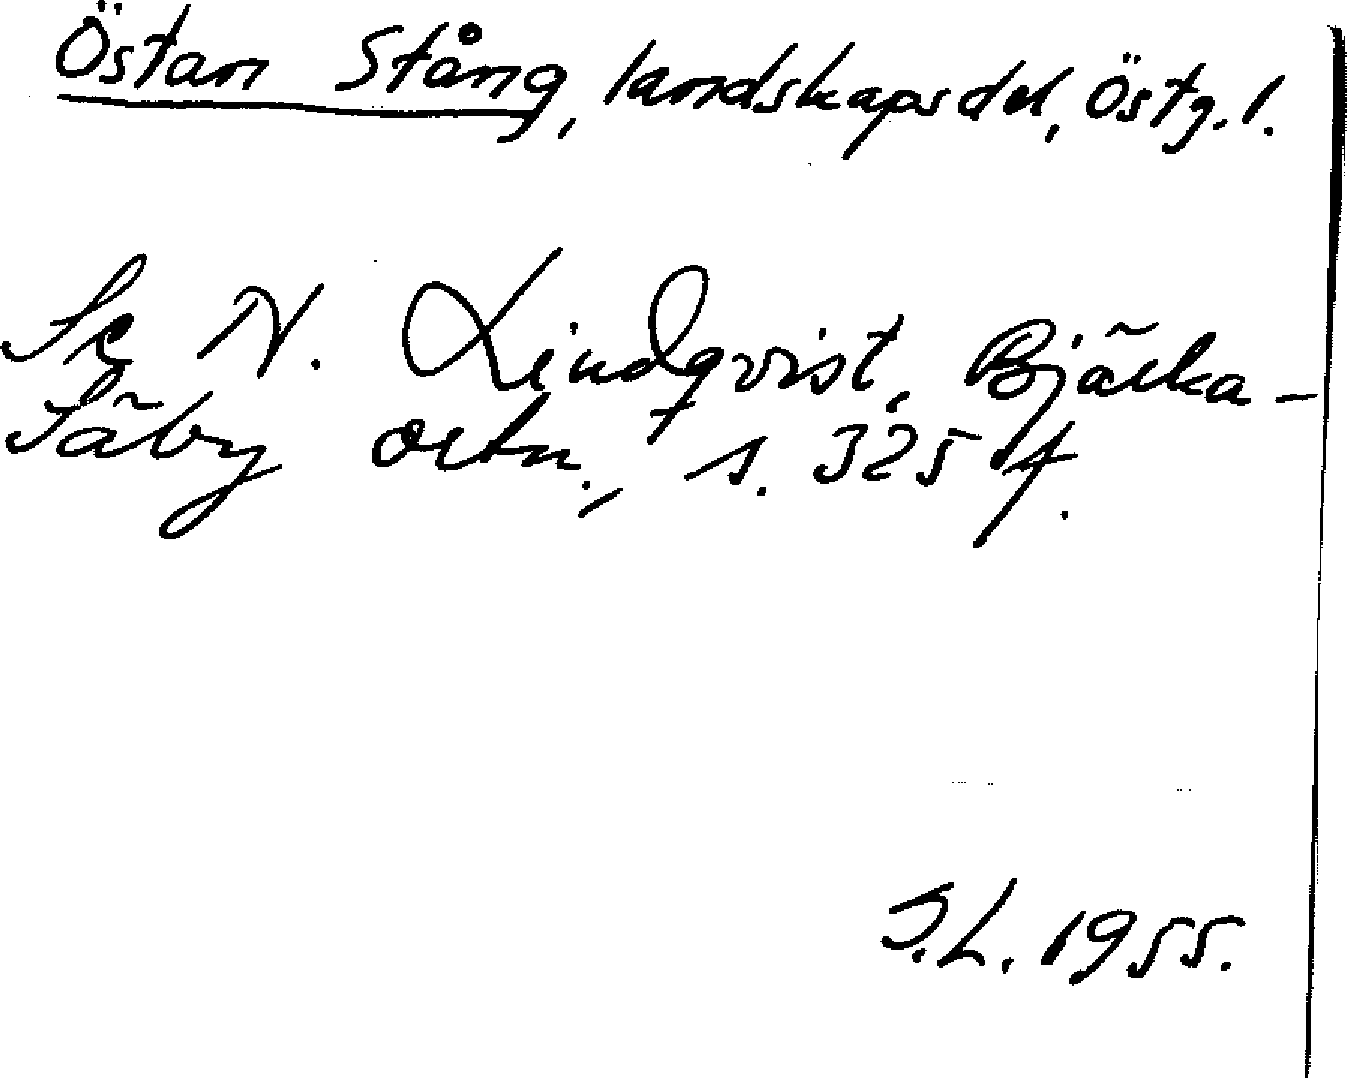 Östan Stång, landskapsdel, Östg. l.
Se N. Lindqvist, Bjärka-
Säby ortn., s. 325 f.
J.L. 1955.